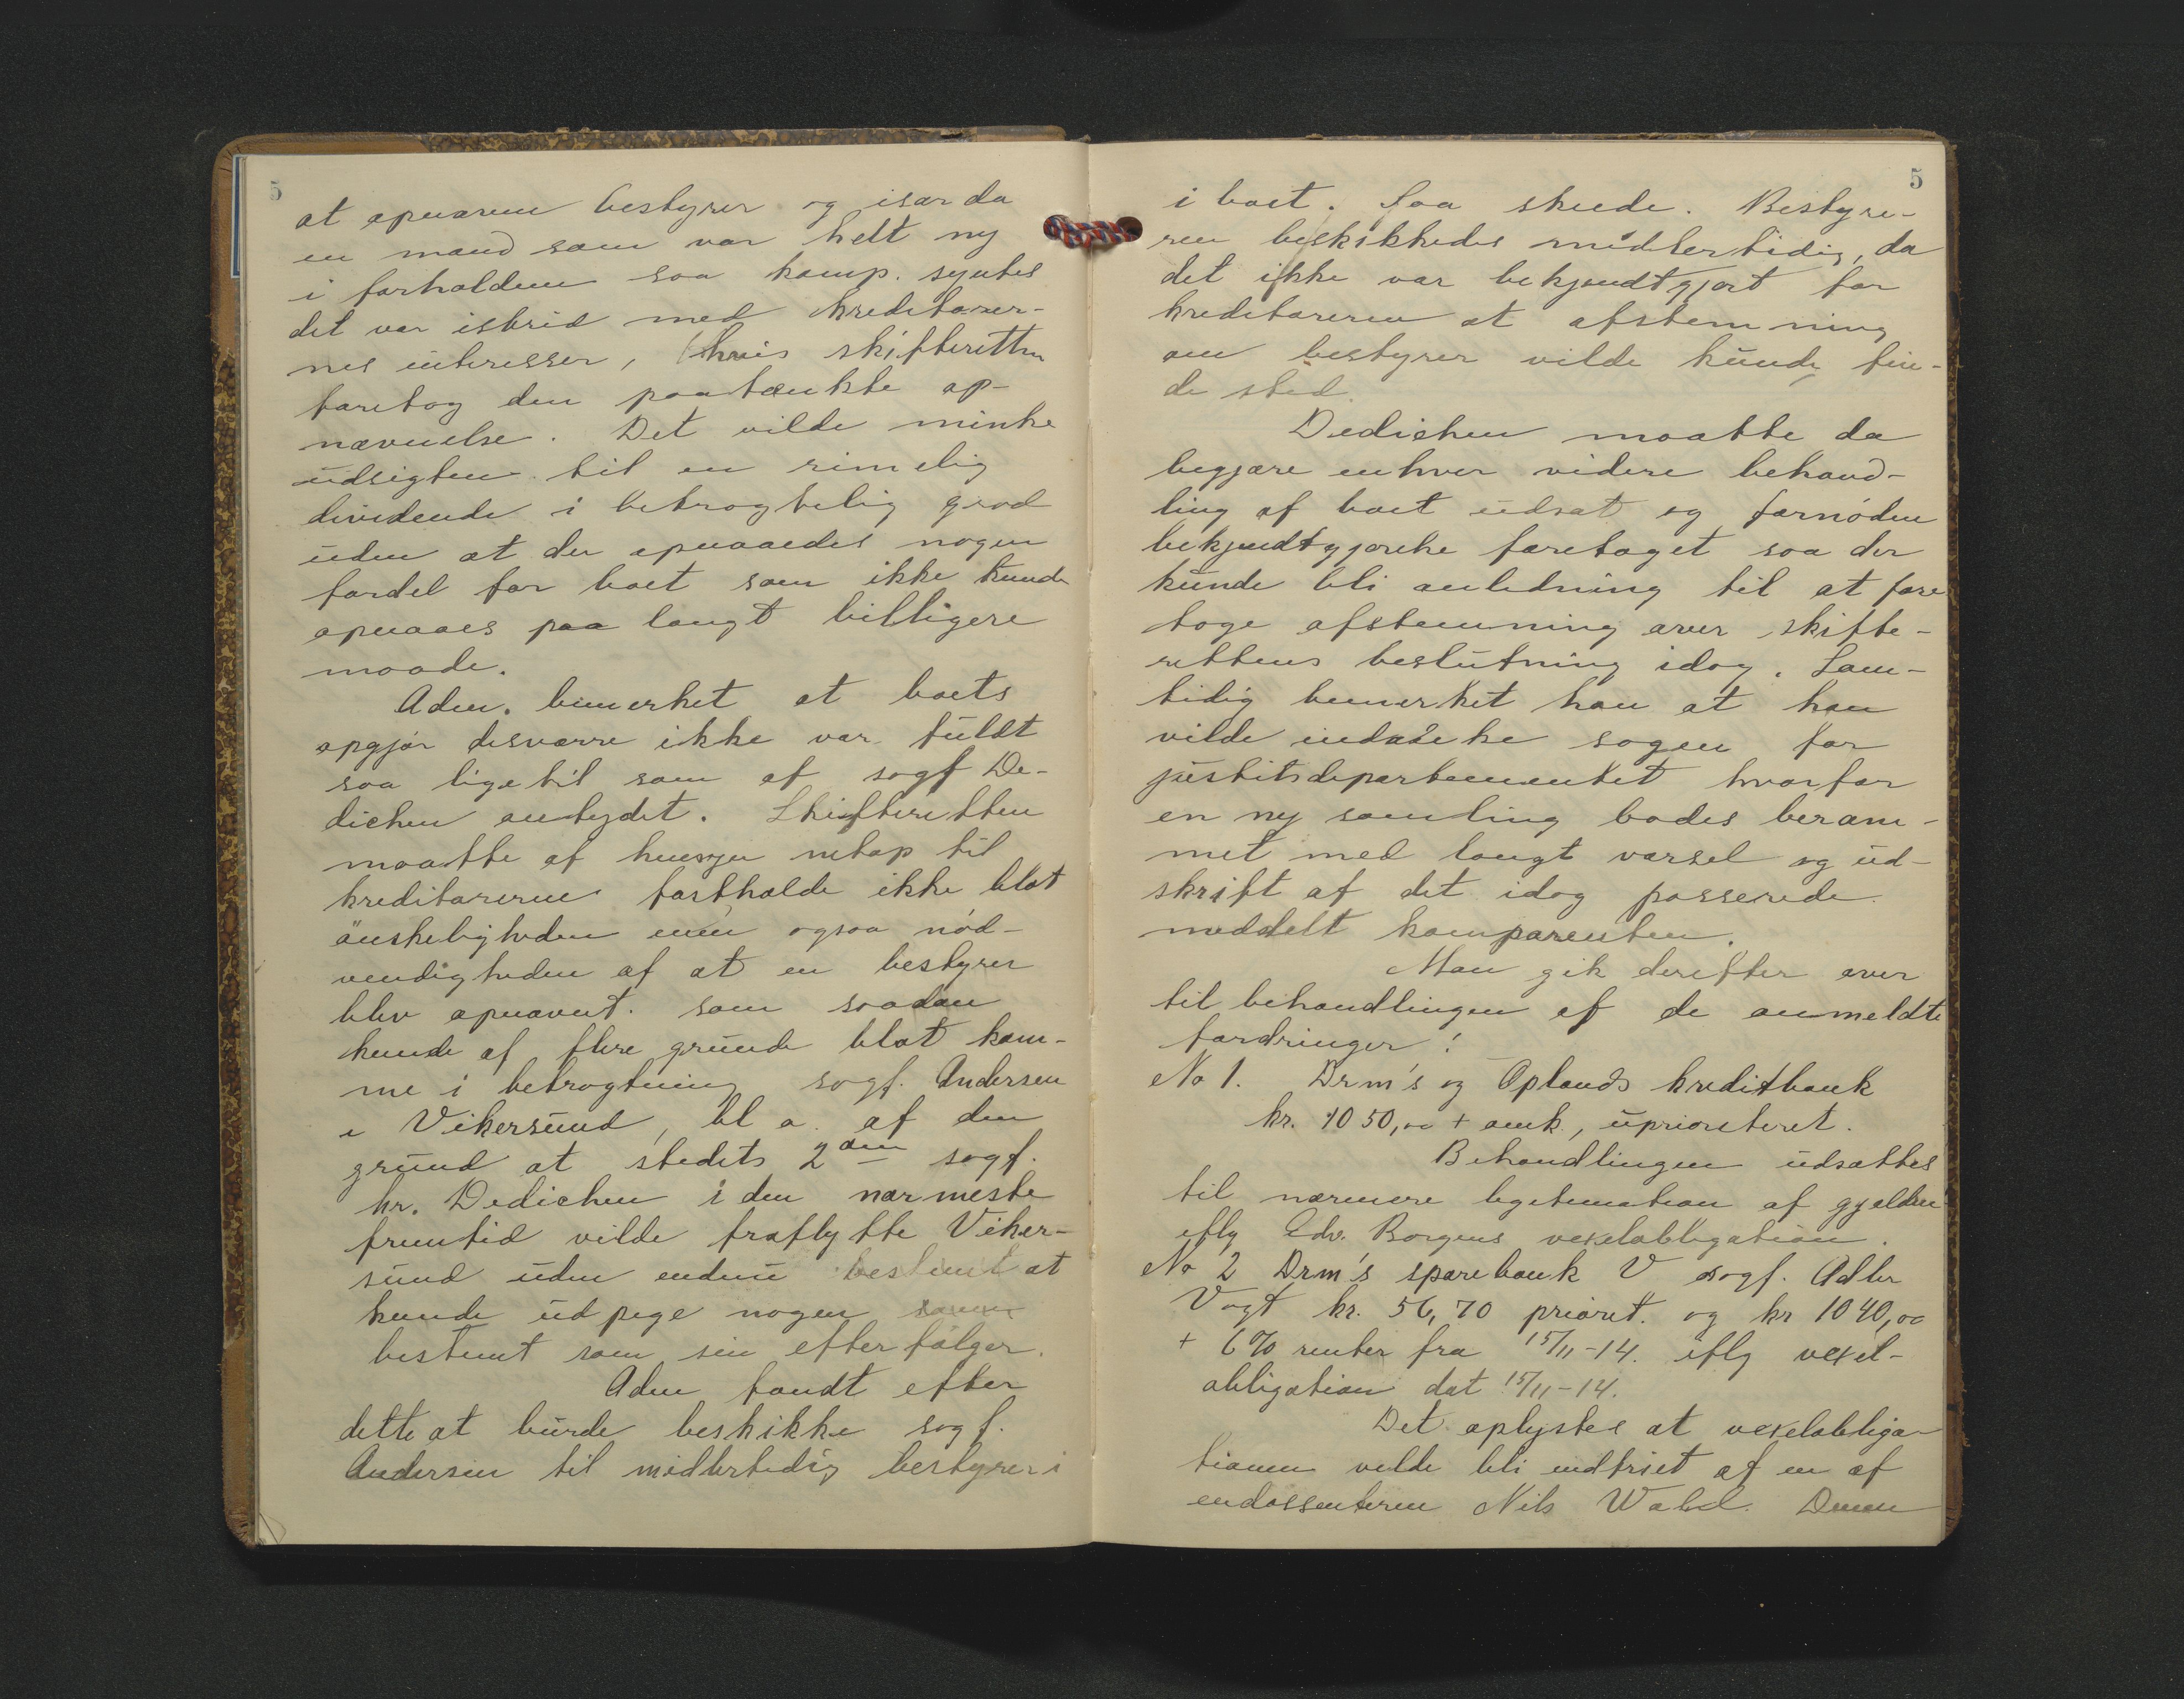 5
at opnævne bestyrer og især da
en mand som var helt ny
i forholdene saa komp. syntes
det var istrid med kreditorer-
nes interesser, hvis skifteretten
foretog den paatænkte op-
nævnelse. Det vilde minke
udsigten til en rimelig
dividende i betragtelig grad
uden at der opnaaedes nogen
fordel for boet som ikke kunde
opnaaes paa langt billigere
maade.
Adm. bemerket at boets
opgjør desværre ikke var fuldt
saa ligetil som af sagf De-
dichen antydet. Skifteretten
maatte af hensyn netop til
kreditorerne fastholde ikke blot
ønskeligheden men ogsaa nød-
vendigheden af at en bestyrer
blev opnævnt. Som saadan
kunde af flere grunde blot kom-
me i betragtning sagf. Andersen
i Vikersund, bl a. af den
grund at stedets 2den sagf.
hr. Dedichen i den nærmeste
fremtid vilde fraflytte Viker-
sund uden endnu bestemt at
kunde udpege nogen
bestemt som sin efterfølger.
Adm fandt efter
dette at burde beskikke sagf.
Andersen til midlertidig bestyrer i
5
i boet. Saa skeede. Bestyre-
ren beskikkedes midlertidig, da
det ikke var bekjendtgjort for
kreditorerne at afstemning
om bestyrer vilde kunde fin-
de sted.
Dedichen maatte da
begjære enhver videre behand-
ling af boet udsat og fornøden
bekjendtgjørelse foretaget saa der
kunde bli anledning til at fore
tage afstemning over skifte-
rettens beslutning idag. Sam-
tidig bemerket han at han
vilde indanke sagen for
justitsdepartementet hvorfor
en ny samling bades beram-
met med langt varsel og ud-
skrift af det idag passerede
meddelt komparenten.
Man gik derefter over
til behandlingen af de anmeldte
fordringer:
No 1. Drm's og Oplands kreditbank
kr. 1050,00 + omk., uprioriteret.
Behandlingen udsattes
til nærmere legitimation af gjælden
iflg Edv. Borgens vexelobligation.
No 2 Drm's sparebank V sagf. Adler
Vogt kr. 56,70 priorit. og kr 1040,00
+ 6% renter fra 15/11-14. iflg vexel-
obligation dat 15/11-14.
Det oplystes at vexelobliga-
tionen vilde bli indfriet af en af
endossenterne Nils Wabel. Denne